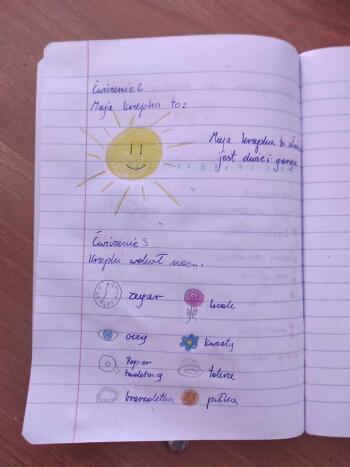 Ćwiczenie 2
Moja kropka to:
Moja kropka to
jest duże i gorące
Ćwiczenie 3
Kropki wokół nas...
zegar
lizak
oczy
kwiaty
Papier
toaletowy
talerz
bransoletka
piłka